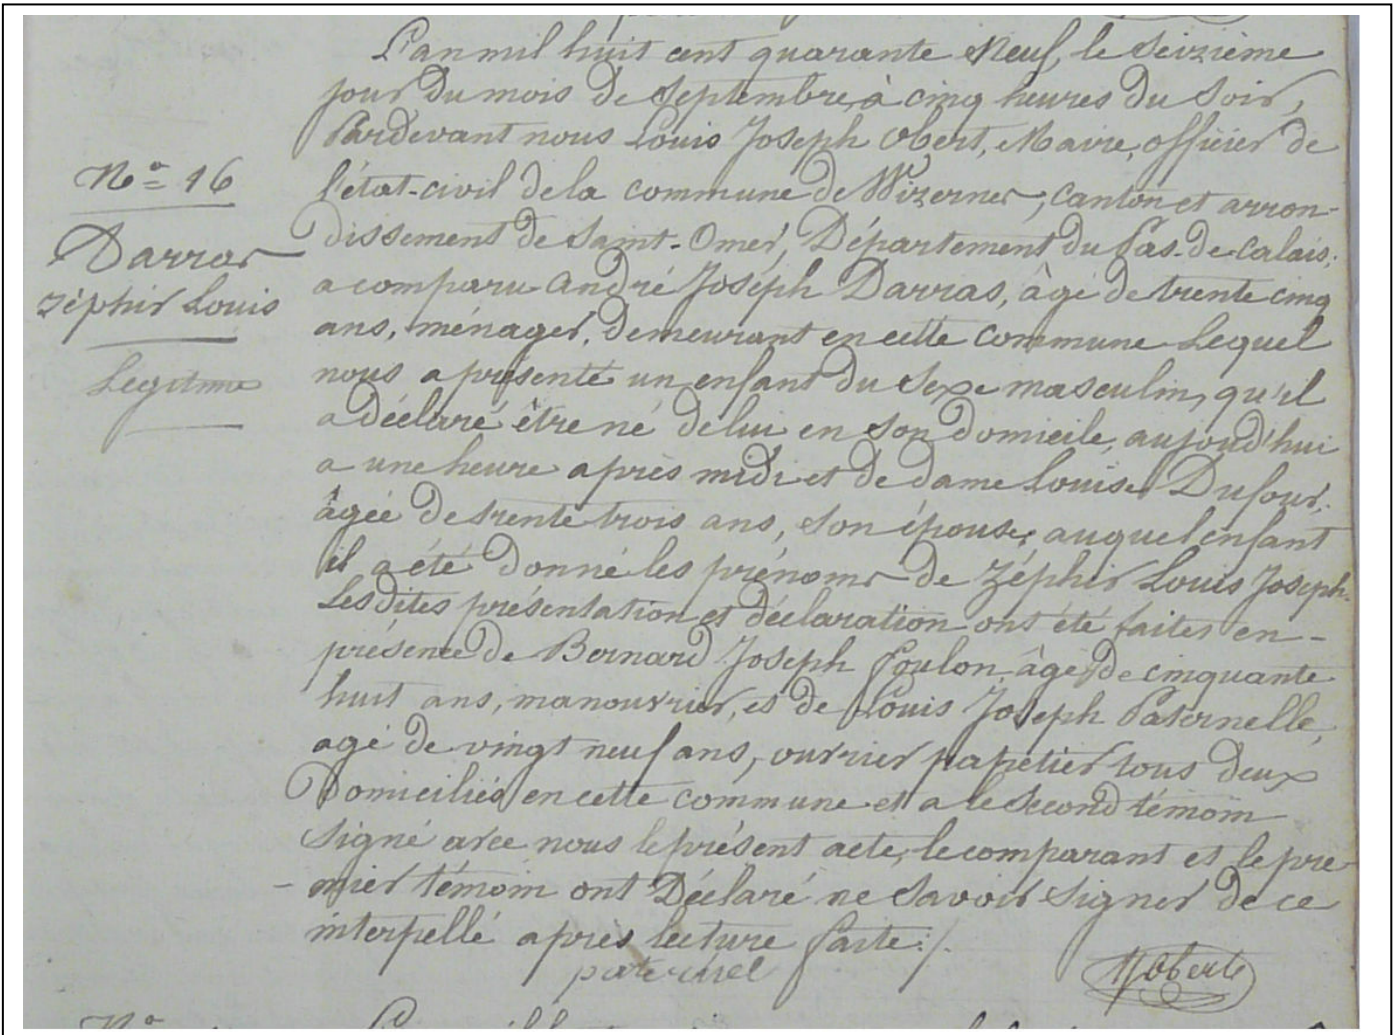 L'an mil huit cent quarante Neuf, le seizième
jour du mois de Septembre, à cinq heures du Soir,
Pardevant nous Louis Joseph Obert, Maire, officier de
l'état-civil de la commune de Wizernes, canton et arron-
dissement de Saint-Omer, Département du Pas-de-Calais,
a comparu André Joseph Darras, âgé de trente cinq
ans, ménager, demeurant en cette commune Lequel
nous a présenté un enfant du Sexe masculin, qu'il
a déclaré être né de lui en son domicile, aujourd'hui
a une heure après midi et de dame Louise Dufour.
âgée de trente trois ans, son épouse, auquel enfant
il a été donné les prénoms de Zéphir Louis Joseph.
Les dites présentation et déclaration ont été faites en-
présence de Bernard Joseph Foulon, âgé de cinquante
huit ans, manouvrier, et de Louis Joseph Paternelle,
agé de vingt neuf ans, ouvrier papetier tous deux
Domiciliés en cette commune et a le Second témoin
Signé avec nous le présent acte, le comparant et le pre-
mier témoin ont Déclaré ne Savoir Signer de ce
interpellé après lecture faite ./.
paternel
Obert
N° 16
Darras
Zéphir Louis
Légitime
N°